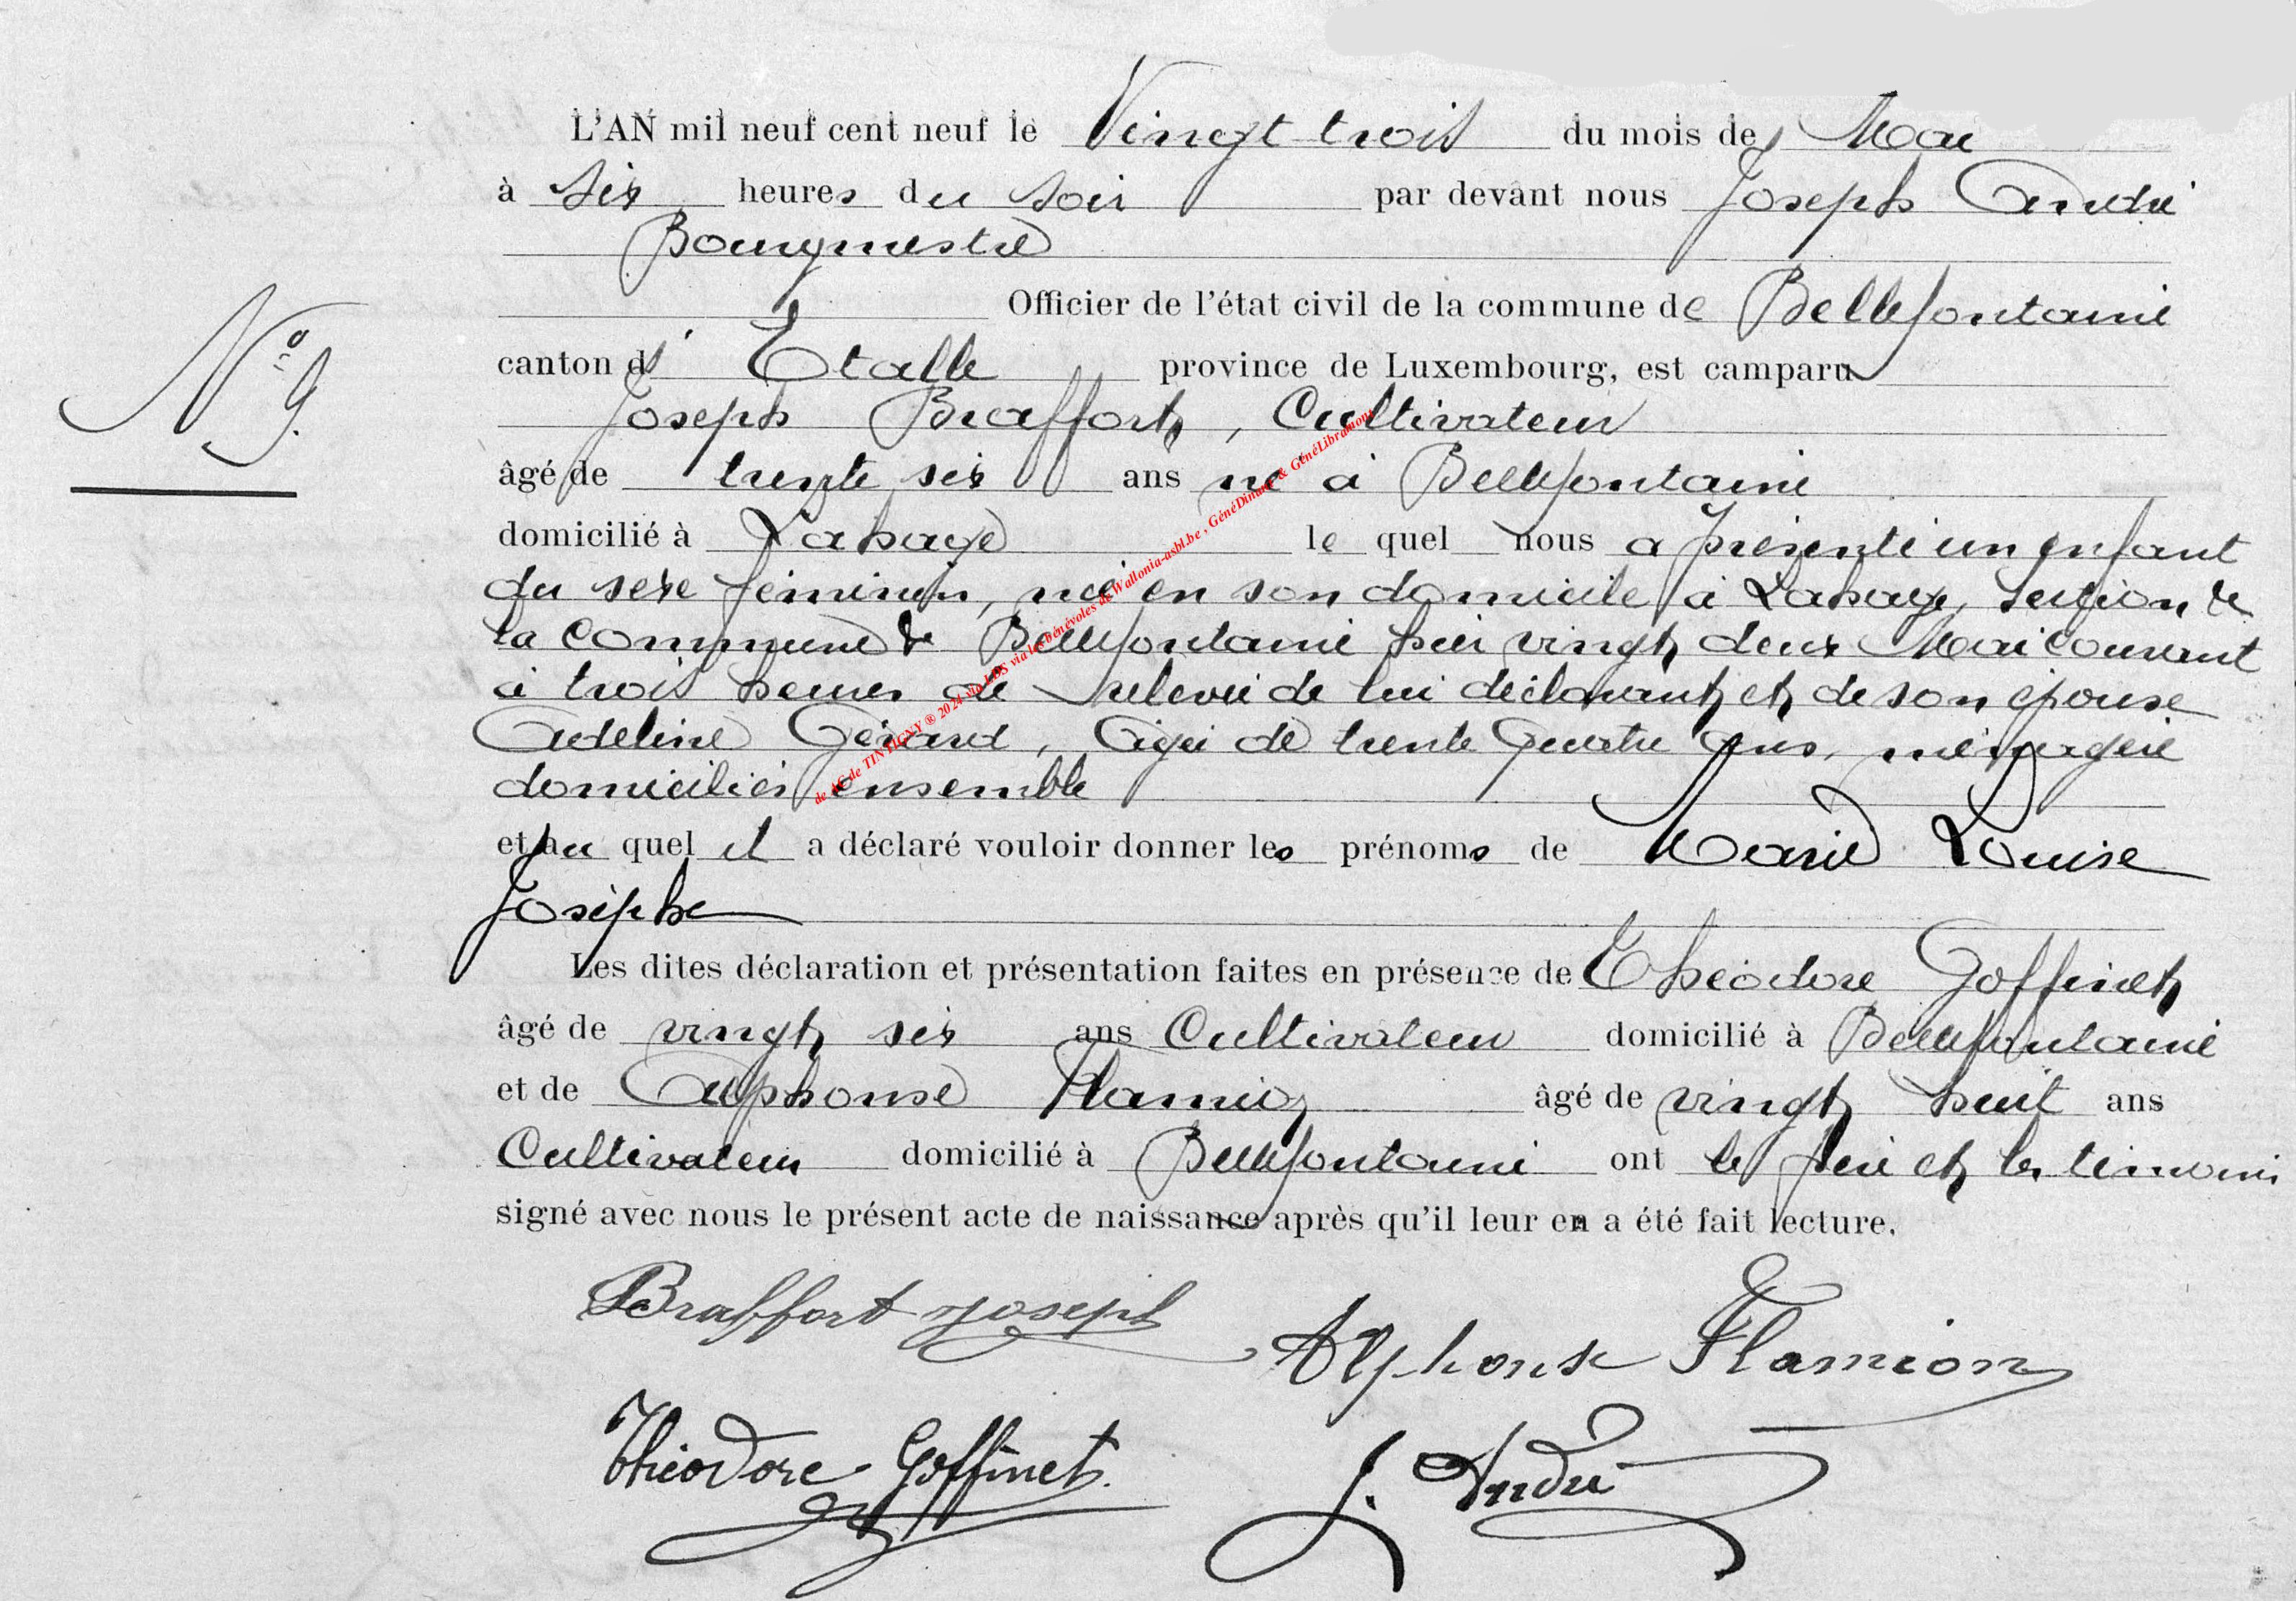 L'AN mil neuf cent neuf le Vingt trois du mois de Mai
à six heures du soir par devant nous Joseph André
Bourgmestre
Officier de l'état civil de la commune de Bellefontaine
N° 9.
canton d' Etalle province de Luxembourg, est camparu
Joseph Braffort, Cultivateur
âgé de trente six ans né à Bellefontaine
domicilié à Lahage le quel nous a présenté un enfant
du sexe féminin, né en son domicile à Lahage, section de
la commune de Bellefontaine hier vingt deux Mai courant
à trois heures de relevée de lui déclarant et de son épouse
Adeline Gérard, âgée de trente quatre ans, ménagère
domiciliés ensemble
et au quel il a déclaré vouloir donner les prénoms de Marie Louise
Josèphe
Les dites déclaration et présentation faites en présence de Théodore Goffinet
âgé de vingt six ans Cultivateur domicilié à Bellefontaine
et de Alphonse Flamion âgé de vingt huit ans
Cultivateur domicilié à Bellefontaine ont le père et les témoins
signé avec nous le présent acte de naissance après qu'il leur en a été fait lecture.
Braffort Joseph
Alphonse Flamion
Théodore Goffinet.
J. André
de AC de TINTIGNY ® 2024 via LDS via les bénévoles de Wallonia-asbl.be, GénéDinant & GénéLibramont